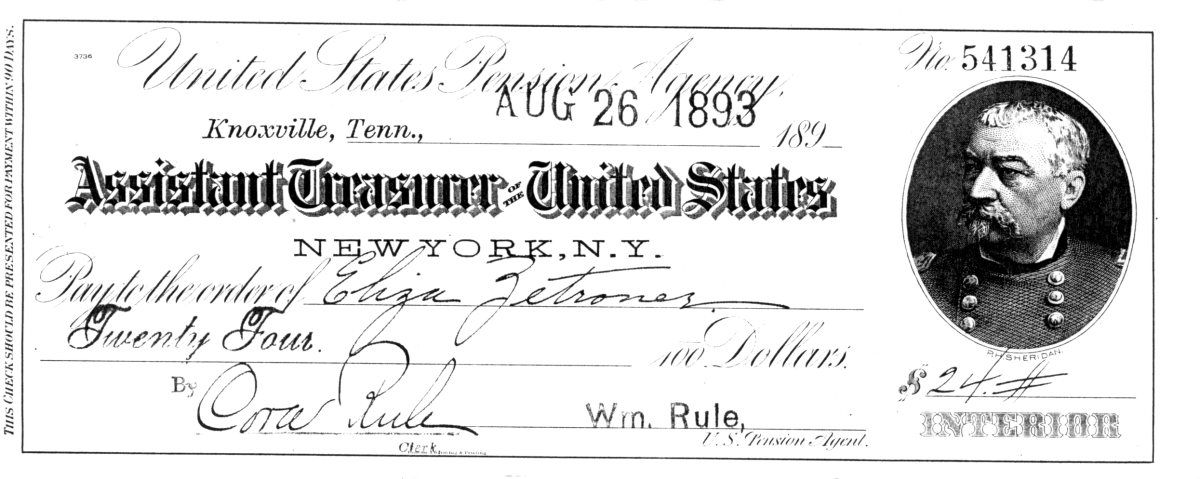 THIS CHECK SHOULD BE PRESENTED FOR PAYMENT WITHIN 90 DAYS.
3736
United States Pension Agency,
No. 541314
AUG 26 1893
Knoxville, Tenn., 189
Assistant Treasurer OF THE United States
NEW YORK, N.Y.
Pay to the order of Eliza Zetroner
Twenty Four. 100 Dollars.
P.H. SHERIDAN.
$ 24.#
By Cora Rule
Wm. Rule,
Clerk
U.S. Pension Agent.
INTERIOR